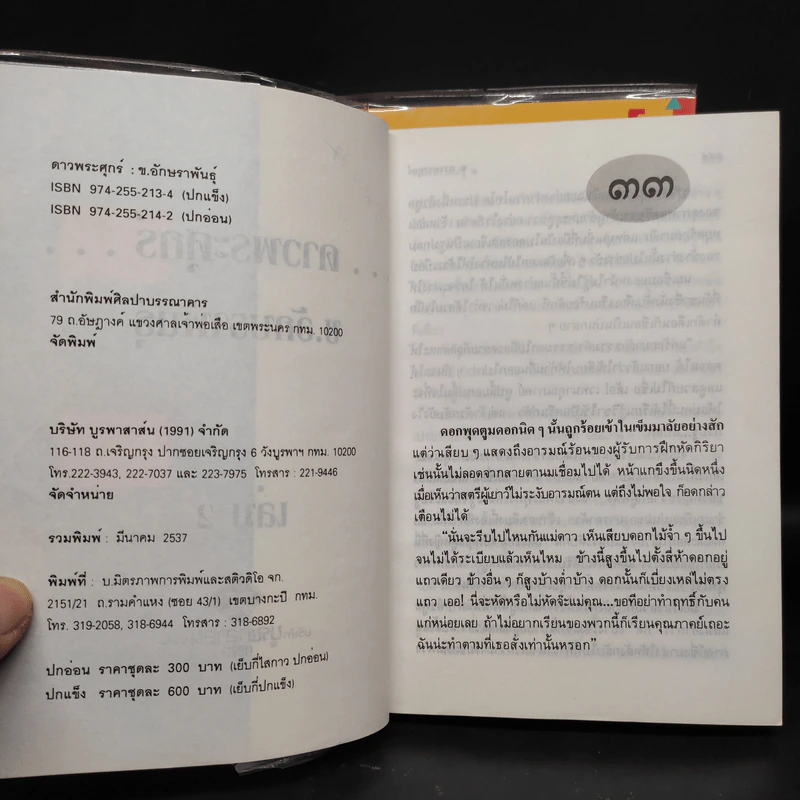 ดาวพระศุกร์ : ข.อักษราพันธุ์
ISBN 974-255-213-4 (ปกแข็ง)
ISBN 974-255-214-2 (ปกอ่อน)
สำนักพิมพ์ศิลปาบรรณาคาร
79 ถ.อัษฎางค์ แขวงศาลเจ้าพ่อเสือ เขตพระนคร กทม. 10200
จัดพิมพ์
บริษัท บูรพาสาส์น (1991) จำกัด
116-118 ถ.เจริญกรุง ปากซอยเจริญกรุง 6 วังบูรพาฯ กทม. 10200
โทร.222-3943, 222-7037 และ 223-7975 โทรสาร : 221-9446
จัดจำหน่าย
รวมพิมพ์ : มีนาคม 2537
พิมพ์ที่ : บ.มิตรภาพการพิมพ์และสติวดิโอ จก.
2151/21 ถ.รามคำแหง (ซอย 43/1) เขตบางกะปิ กทม.
โทร. 319-2058, 318-6944 โทรสาร : 318-6892
ปกอ่อน ราคาชุดละ 300 บาท (เย็บกี่ไสกาว ปกอ่อน)
ปกแข็ง ราคาชุดละ 600 บาท (เย็บกี่ปกแข็ง)
๓๓
ดอกพุดตูมดอกนิด ๆ นั้นถูกร้อยเข้าในเข็มมาลัยอย่างสัก
แต่ว่าเสียบ ๆ แสดงถึงอารมณ์ร้อนของผู้รับการฝึกหัดกิริยา
เช่นนั้นไม่ลอดจากสายตานมเชื่อมไปได้ หน้าแกขึงขึ้นนิดหนึ่ง
เมื่อเห็นว่าสตรีผู้เยาว์ไม่ระงับอารมณ์ตน แต่ถึงไม่พอใจ ก็อดกล่าว
เตือนไม่ได้
“นั่นจะรีบไปไหนกันแม่ดาว เห็นเสียบดอกไม้จ้ำ ๆ ขึ้นไป
จนไม่ได้ระเบียบแล้วเห็นไหม ข้างนี้สูงขึ้นไปตั้งสี่ห้าดอกอยู่
แถวเดียว ข้างอื่น ๆ ก็สูงบ้างต่ำบ้าง ดอกนั้นก็เบี่ยงเหล่ไม่ตรง
แถว เออ! นี่จะหัดหรือไม่หัดจ๊ะแม่คุณ...ขอทีอย่าทำฤทธิ์กับคน
แก่หน่อยเลย ถ้าไม่อยากเรียนของพวกนี้ก็เรียนคุณภาคย์เถอะ
ฉันน่ะทำตามที่เธอสั่งเท่านั้นหรอก”